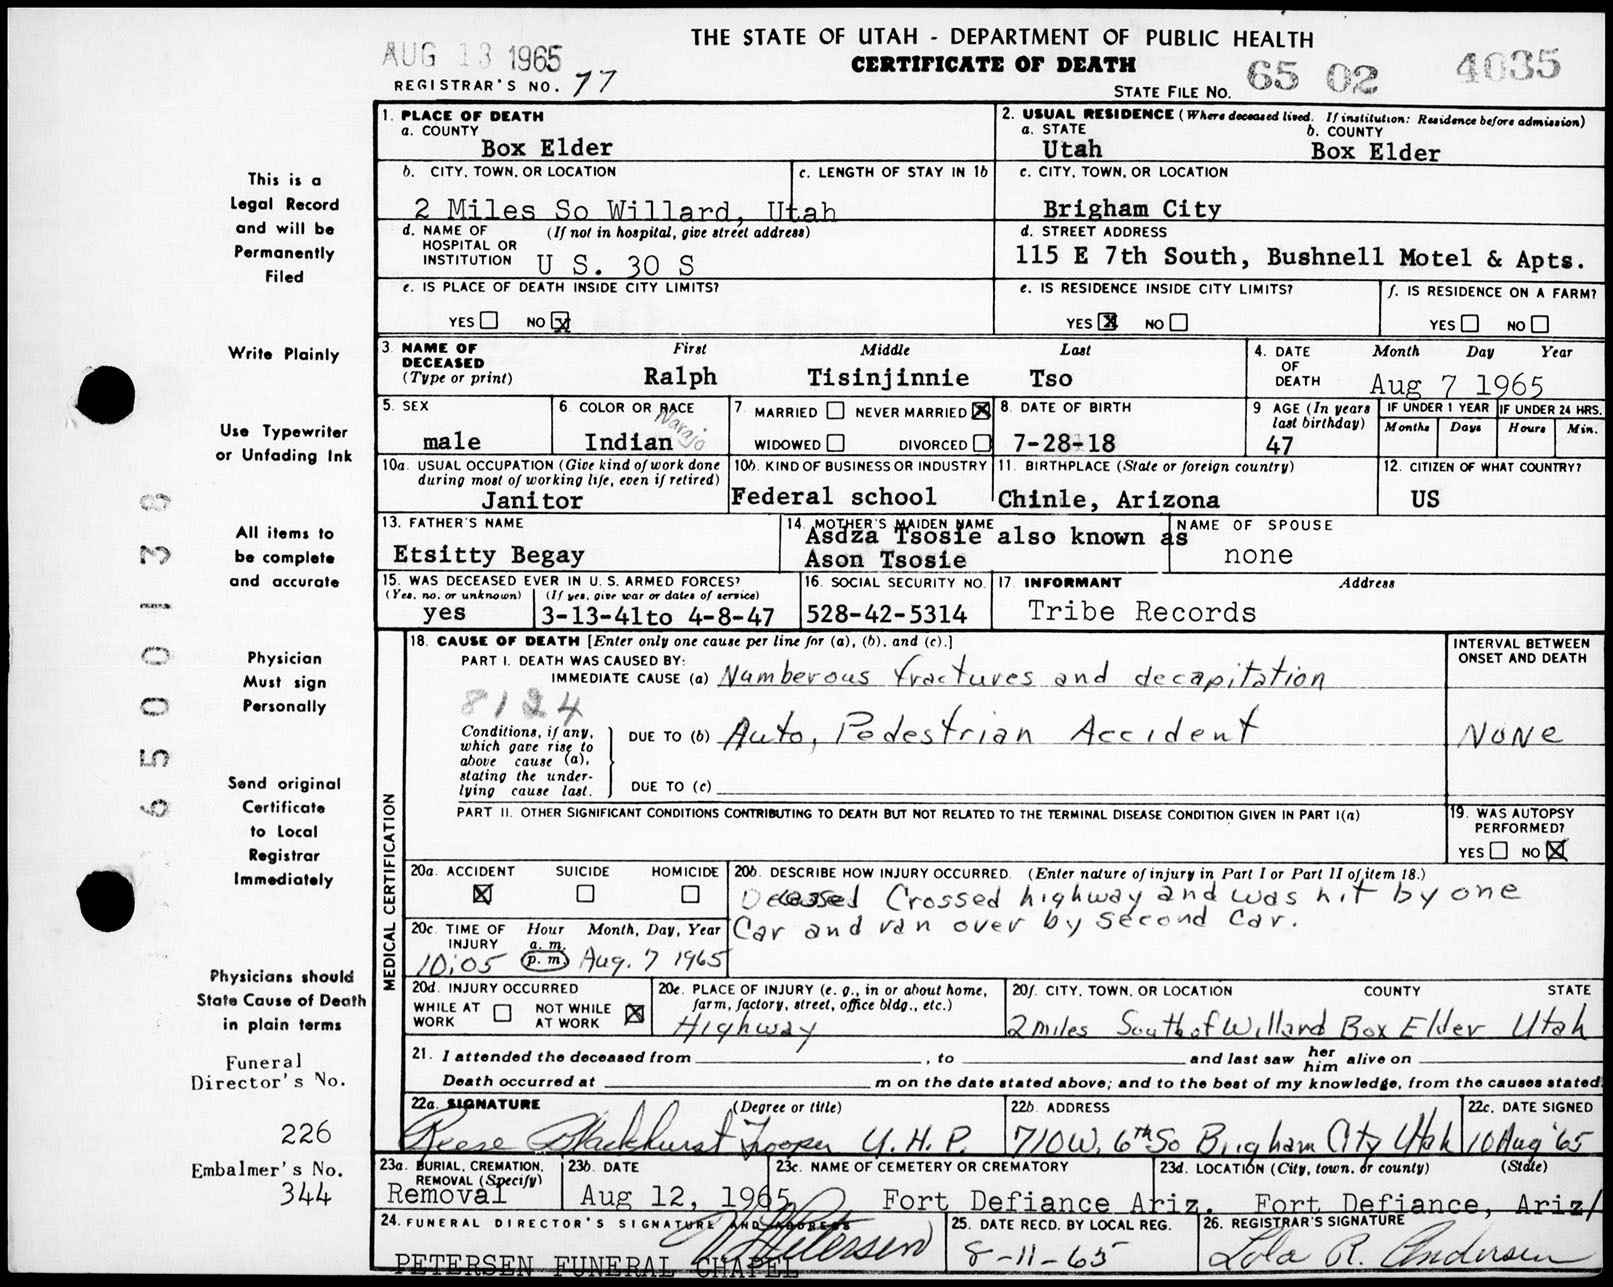 THE STATE OF UTAH - DEPARTMENT OF PUBLIC HEALTH
CERTIFICATE OF DEATH
AUG 13 1965
REGISTRAR'S NO. 77
STATE FILE NO. 65 02 4035
This is a
Legal Record
and will be
Permanently
Filed
Write Plainly
Use Typewriter
or Unfading Ink
All items to
be complete
and accurate
Physician
Must sign
Personally
Send original
Certificate
to Local
Registrar
Immediately
Physicians should
State Cause of Death
in plain terms
Funeral
Director's No.
226
Embalmer's No.
344
65 00138
1. PLACE OF DEATH
a. COUNTY
Box Elder
2. USUAL RESIDENCE (Where deceased lived. If institution: Residence before admission)
a. STATE b. COUNTY
Utah Box Elder
b. CITY, TOWN, OR LOCATION c. LENGTH OF STAY IN 1b
2 Miles So Willard, Utah
c. CITY, TOWN, OR LOCATION
Brigham City
d. NAME OF (If not in hospital, give street address)
HOSPITAL OR
INSTITUTION U S. 30 S
d. STREET ADDRESS
115 E 7th South, Bushnell Motel & Apts.
e. IS PLACE OF DEATH INSIDE CITY LIMITS?
YES NO X
e. IS RESIDENCE INSIDE CITY LIMITS?
YES X NO
f. IS RESIDENCE ON A FARM?
YES NO
3. NAME OF DECEASED (Type or print)
First Middle Last
Ralph Tisinjinnie Tso
4. DATE OF DEATH Month Day Year
Aug 7 1965
5. SEX
male
6. COLOR OR RACE
Indian Navajo
7. MARRIED NEVER MARRIED X
WIDOWED DIVORCED
8. DATE OF BIRTH
7-28-18
9 AGE (In years last birthday)
47
IF UNDER 1 YEAR IF UNDER 24 HRS.
Months Days Hours Min.
10a. USUAL OCCUPATION (Give kind of work done
during most of working life, even if retired)
Janitor
10b. KIND OF BUSINESS OR INDUSTRY
Federal school
11. BIRTHPLACE (State or foreign country)
Chinle, Arizona
12. CITIZEN OF WHAT COUNTRY?
US
13. FATHER'S NAME
Etsitty Begay
14. MOTHER'S MAIDEN NAME
Asdza Tsosie also known as
Ason Tsosie
NAME OF SPOUSE
none
15. WAS DECEASED EVER IN U. S. ARMED FORCES?
(Yes, no, or unknown) (If yes, give war or dates of service)
yes 3-13-41to 4-8-47
16. SOCIAL SECURITY NO.
528-42-5314
17. INFORMANT Address
Tribe Records
MEDICAL CERTIFICATION
18. CAUSE OF DEATH [Enter only one cause per line for (a), (b), and (c).]
INTERVAL BETWEEN
ONSET AND DEATH
PART I. DEATH WAS CAUSED BY:
IMMEDIATE CAUSE (a) Numberous fractures and decapitation
8124
Conditions, if any,
which gave rise to
above cause (a),
stating the under-
lying cause last.
DUE TO (b) Auto, Pedestrian Accident
NONe
DUE TO (c)
PART II. OTHER SIGNIFICANT CONDITIONS CONTRIBUTING TO DEATH BUT NOT RELATED TO THE TERMINAL DISEASE CONDITION GIVEN IN PART I(a)
19. WAS AUTOPSY
PERFORMED?
YES NO X
20a. ACCIDENT SUICIDE HOMICIDE
X
20b. DESCRIBE HOW INJURY OCCURRED. (Enter nature of injury in Part I or Part II of item 18.)
Deceased Crossed highway and was hit by one
Car and ran over by second Car.
20c. TIME OF INJURY Hour Month, Day, Year
a. m.
10:05 p. m. Aug. 7 1965
20d. INJURY OCCURRED
WHILE AT WORK NOT WHILE AT WORK X
20e. PLACE OF INJURY (e. g., in or about home,
farm, factory, street, office bldg., etc.)
Highway
20f. CITY, TOWN, OR LOCATION COUNTY STATE
2 miles South of Willard Box Elder Utah
21. I attended the deceased from , to and last saw her him alive on
Death occurred at m on the date stated above; and to the best of my knowledge, from the causes stated.
22a. SIGNATURE (Degree or title)
Reese Blackhurst Trooper U. H. P.
22b. ADDRESS
710 W. 6th So Brigham City Utah
22c. DATE SIGNED
10 Aug '65
23a. BURIAL, CREMATION,
REMOVAL (Specify)
Removal
23b. DATE
Aug 12, 1965
23c. NAME OF CEMETERY OR CREMATORY
Fort Defiance Ariz.
23d. LOCATION (City, town, or county) (State)
Fort Defiance, Ariz/
24. FUNERAL DIRECTOR'S SIGNATURE AND ADDRESS
Petersen
PETERSEN FUNERAL CHAPEL
25. DATE RECD. BY LOCAL REG.
8-11-65
26. REGISTRAR'S SIGNATURE
Lola R. Andersen